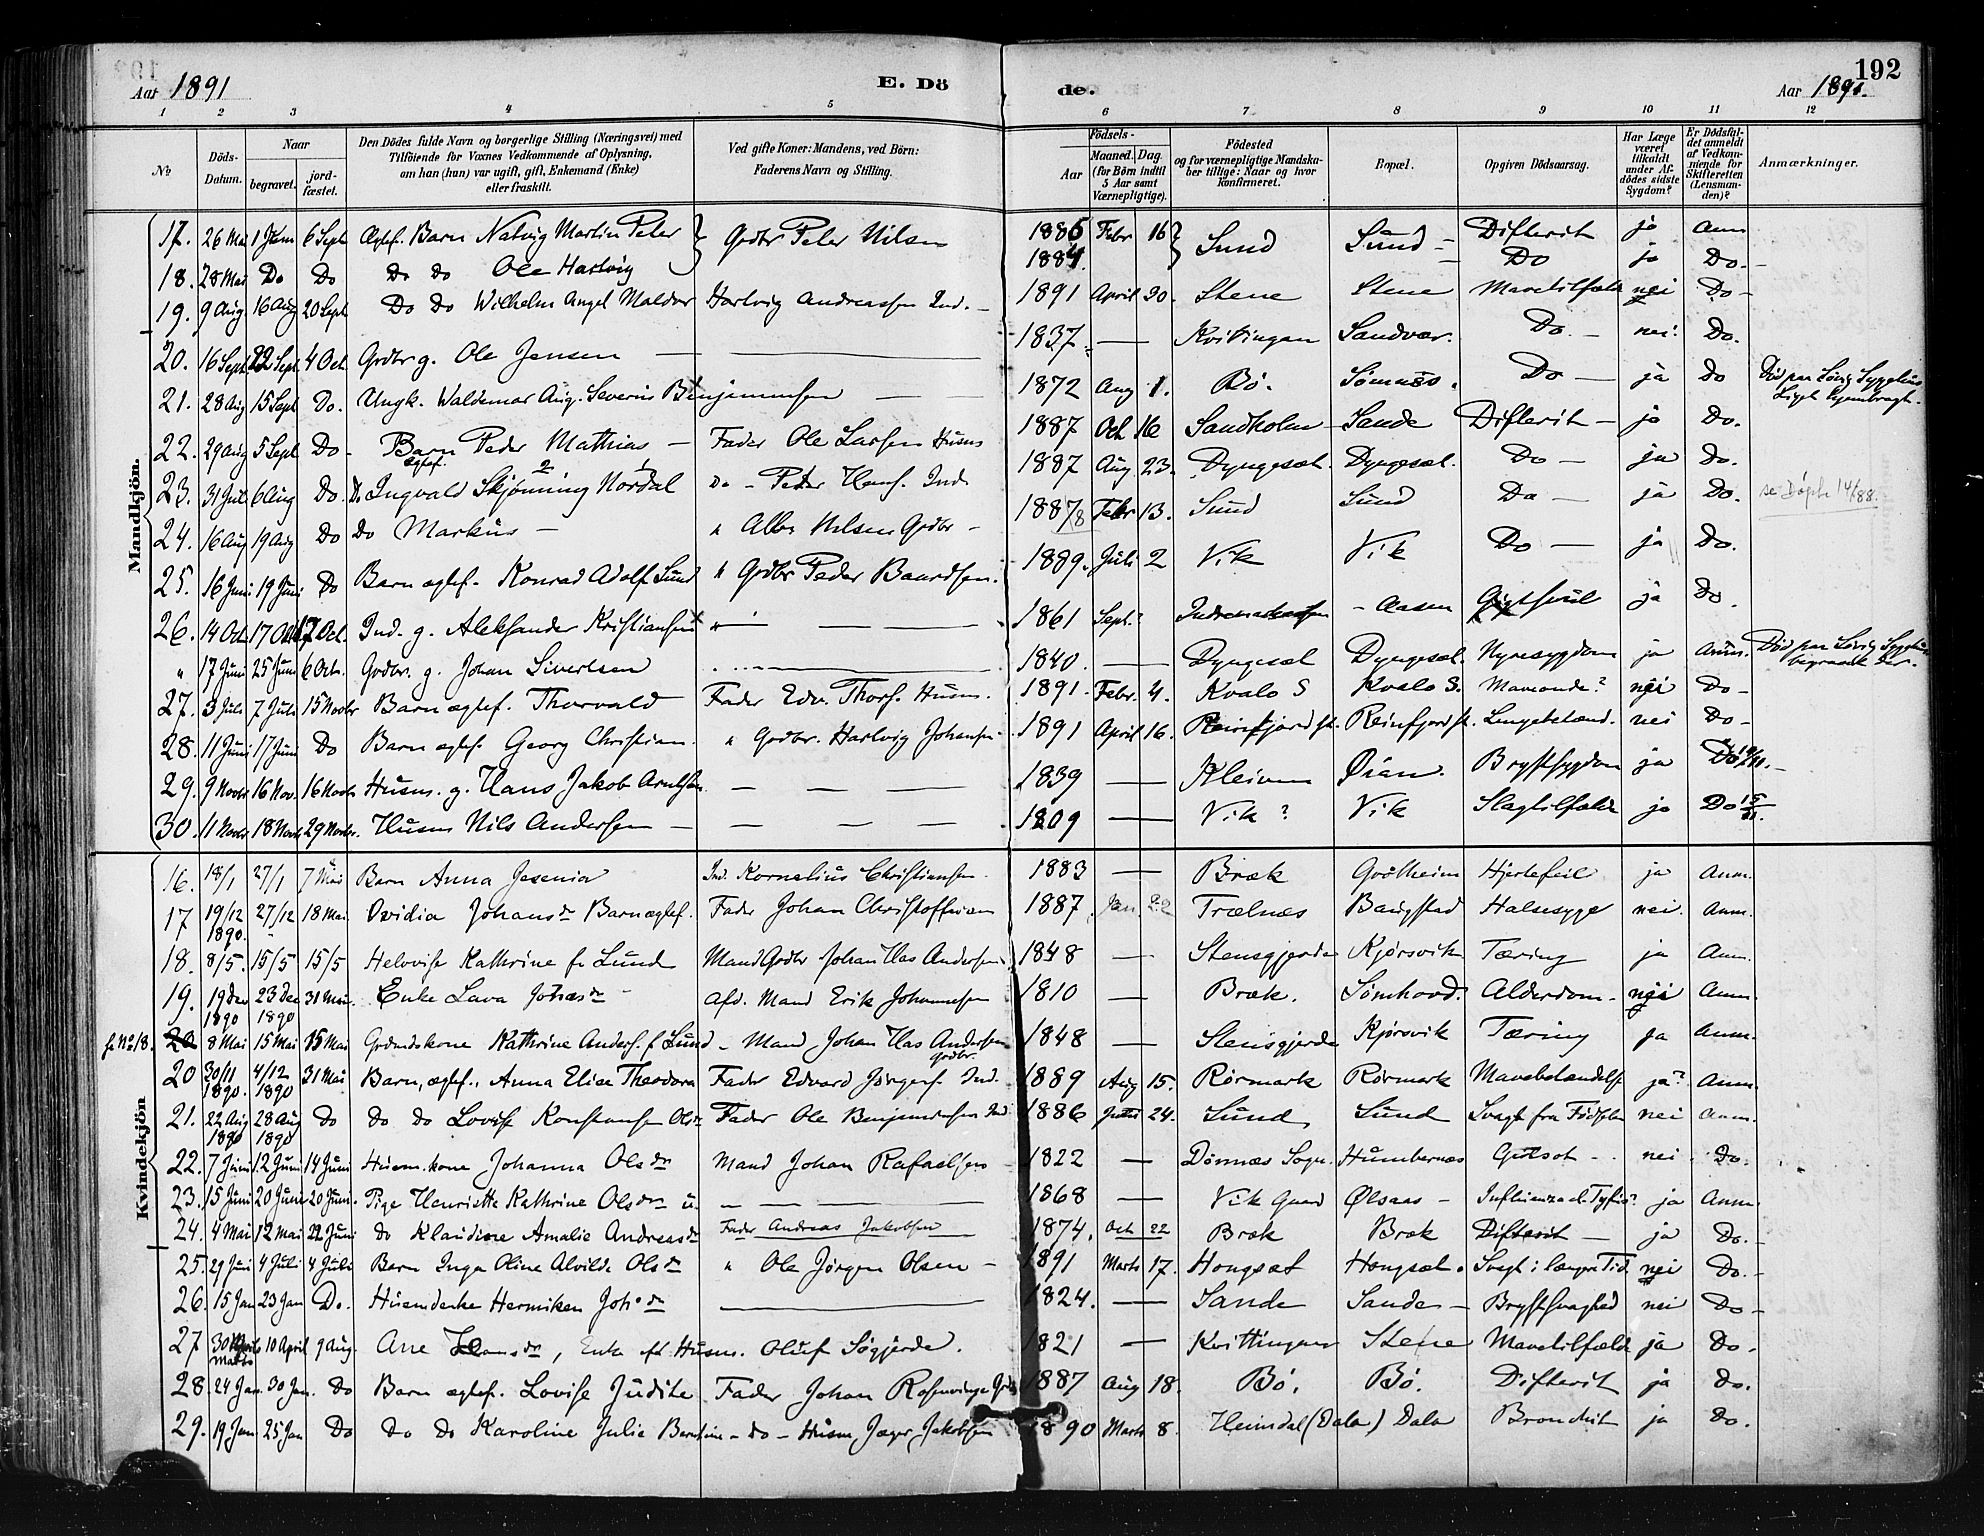 192
Aar 1891
E. Dö
de.
Aar 1891.
1 2 3 4 5 6 7 8 9 10 11 12
№ Döds-Datum. Naar begravet. jord-fæstet. Den Dödes fulde Navn og borgerlige Stilling (Næringsvei) med Tilföiende for Voxnes Vedkommende af Oplysning, om han (hun) var ugift, gift, Enkemand (Enke) eller fraskilt. Ved gifte Koner: Mandens, ved Börn: Faderens Navn og Stilling. Födsels- Aar Maaned. Dag. (for Börn indtil 5 Aar samt Værnepligtige). Födested og for værnepligtige Mandskaber tillige: Naar og hvor konfirmeret. Bopæl. Opgiven Dödsaarsag. Har Læge været tilkaldt under Afdödes sidste Sygdom? Er Dödsfaldet anmeldt af Vedkommende for Skifteretten (Lensmanden)? Anmærkninger.
Mandkjön.
17. 26 Mai 1 Juni 6 Sept Ægtef. Barn Natvig Martin Peter Grdbr Peter Nilsen 1885 Febr 16 Sund Sund Difterit ja Anm
18. 28 Mai Do Do Do Do Ole Hartvig 1884. Do ja Do.
19. 9 Aug 16 Aug 20 Sept Do Do Wilhelm Angel Maldvar Hartvig Andreassen Ind. 1891 April 30. Stene Stene Mavetilfælde nei Do
20. 16 Sept 22 Sept 4 Oct. Grdbr g. Ole Jensen 1837. Kvitingen Sandvær. Do nei Do.
21. 28 Aug 15 Sept Do. Ungk. Waldemar Aug. Severin Benjaminsen 1872 Aug 1. Bö. Sömnes. Do ja Do Död paa Lövig Sygehus Liget hjembragt.
22. 29 Aug 5 Sept Do Barn ægtef. Peder Mathias Fader Ole Larsen Husm 1887 Oct 16 Sandholm Sande Difterit ja Do.
23. 31 Juli 6 Aug Do. Do Ingvald Skjönning Nordal Do Peder Hans. Ind. 1887 Aug 23. Dyngesæt. Dyngesæt. Do ja Do.
24. 16 Aug 19 Aug Do Do Markus " Albr Nilsen Grdbr 1887/8 Febr 13. Sund Sund Do ja Do. se Döpte 14/88.
25. 16 Juni 19 Juni Do Barn ægtef. Konrad Adolf Lund " Grdbr Peder Baardsen. 1889. Juli 2 Vik Vik Do ja Do.
26. 14 Oct. 17 Oct 17 Oct. Ind. g. Aleksander Kristiansen " 1861 Sept. Aasen ja Do.
" 17 Juni 25 Juni 6 Octr. Grdbr. g. Johan Sivertsen 1840. Dyngesæt Dyngesæt. Nyresygdom ja Anm. Död paa Lövig Sygehus begravet der.
27. 3 Juli 7 Juli 15 Novbr Barn ægtef. Thorvald Fader Edv. Thors. Husm. 1891. Febr. 4. Kvalo S Kvalo S. Maveonde? nei Do
28. 11 Juni 17 Juni Do Barn ægtef. Georg Christian " Grdbr. Hartvig Johansen 1891 April 16. Reinfjord st. Reinfjord st. Lungebetænd. nei Do
29. 9 Novbr 16 Nov. 16 Novbr Husm. g. Hans Jakob Arntsen 1839 Kleiven Öian. Brystsygdom ja Do
30. 11 Novbr 18 Novbr 29 Novbr. Husm Nils Andersen 1809 Vik? Vik Slagtilfælde ja Do
Kvindekjön
16. 18/1 27/1 7 Mai Barn Anna Jesenia Ind. Kornelius Christiansen. 1883 Bræk Gvolheim Hjertefeil ja Anm.
17 19/12 1890. 27/12 18 Mai Ovidia Johansdr Barn ægtef. Fader Johan Christoffersen 1887 Jan 22 Trælnæs Bangstad Halsesyge nei. Anm.
18. 8/5. 15/5 15/5 Helovise Kathrine f. Lund Mand Grdbr Johan Elias Andersen. 1848 Stensgjerde Kjörsvik Tæring ja Anm.
19. 19 Dec 1890 23 Dec 1890 31 Mai Enke Lava Johasdr Afd. Mand Erik Johannesen 1810 Bræk. Sömhovd. Alderdom nei Anm.
se No 18. 20 8 Mai 15 Mai 15 Mai Grdmdskone Kathrine Anders. f Lund Mand Johan Elias Andersen Grdbr. 1848 Stensgjerde Kjörsvik Tæring ja Anm.
20 30/11 1890. 4/12 1890 31 Mai Barn, ægtef., Anna Elise Theodora Fader Edvard Jörgens. Ind. 1889 Aug 15. Rörmark Rörmark Mavebetændelse ja? Anm.
21. 22 Aug 1890 28 Aug 1890 Do Do Do Lovise Konstanse Olsdr Fader Ole Benjaminsen Ind 1886 24. Sund Sund Svagt fra Födselen nei Anm.
22. 7 Juni 12 Juni 14 Juni Husm.kone Johanna Olsdr Mand Johan Rafaelsen 1822 Dönnæs Sogn. Humbernæs Gulsot nei Do.
23. 15 Juni 20 Juni 20 Juni. Pige Henriette Kathrine Olsdr u. 1868 Vik Gaard Ölsaas Influenza el. Tyfus? ja Anm
24. 4 Mai 12 Mai 22 Juni Do Klaudine Amalie Andreasdr Fader Andreas Jakobsen 1874. Oct 22 Bræk Bræk Difterit ja Do.
25. 29 Juni 4 Juli 4 Juli Barn Inga Oline Alvilde Olsdr " Ole Jörgen Olsen 1891 Marts 17. Hongsæt Hongsæt. Svagt i længre Tid. nei Do.
26. 15 Jan 23 Jan Do. Husmdenke Hermiken Johsdr 1824. Sande Sande Brystsvaghed nei Do
27 30 Marts 10 April 9 Aug. Ane Hansdr, Enke eft Husm. Oluf Sögjerde. 1821 Kvittingen Stene Mavetilfælde ja Do.
28. 24 Jan. 30 Jan. Do Barn ægtef. Lovise Judite Fader Johan Rosenvinge Grdb 1887 Aug 18. Bö. Bö. Difterit ja Do.
29. 19 Jan 25 Jan Do Do Do Karoline Julie Berntine Do Husm Jæger Jakobsen 1890 Marts 8. Heimdal (Dala) Dala Bronchit ja Do.